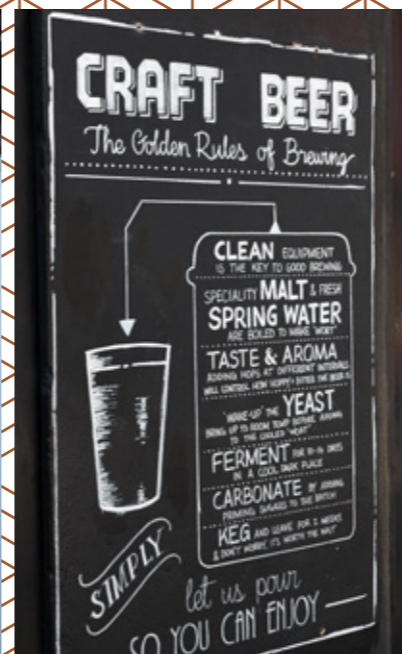 CRAFT BEER
The Golden Rules of Brewing
CLEAN EQUIPMENT
IS THE KEY TO GOOD BREWING
SPECIALITY MALT & FRESH
SPRING WATER
ARE BOILED TO MAKE 'WORT'
TASTE & AROMA
ADDING HOPS AT DIFFERENT INTERVALS
WILL CONTROL HOW HOPPY + BITTER THE BEER IS
'WAKE-UP' THE YEAST
BRING UP TO ROOM TEMP BEFORE ADDING
TO THE COOLED 'WORT'
FERMENT FOR DAYS
IN A COOL DARK PLACE
CARBONATE BY ADDING
PRIMING SUGARS TO THE BATCH!
KEG AND LEAVE FOR 2 WEEKS
& DON'T WORRY, IT'S WORTH THE WAIT
SIMPLY
let us pour
SO YOU CAN ENJOY